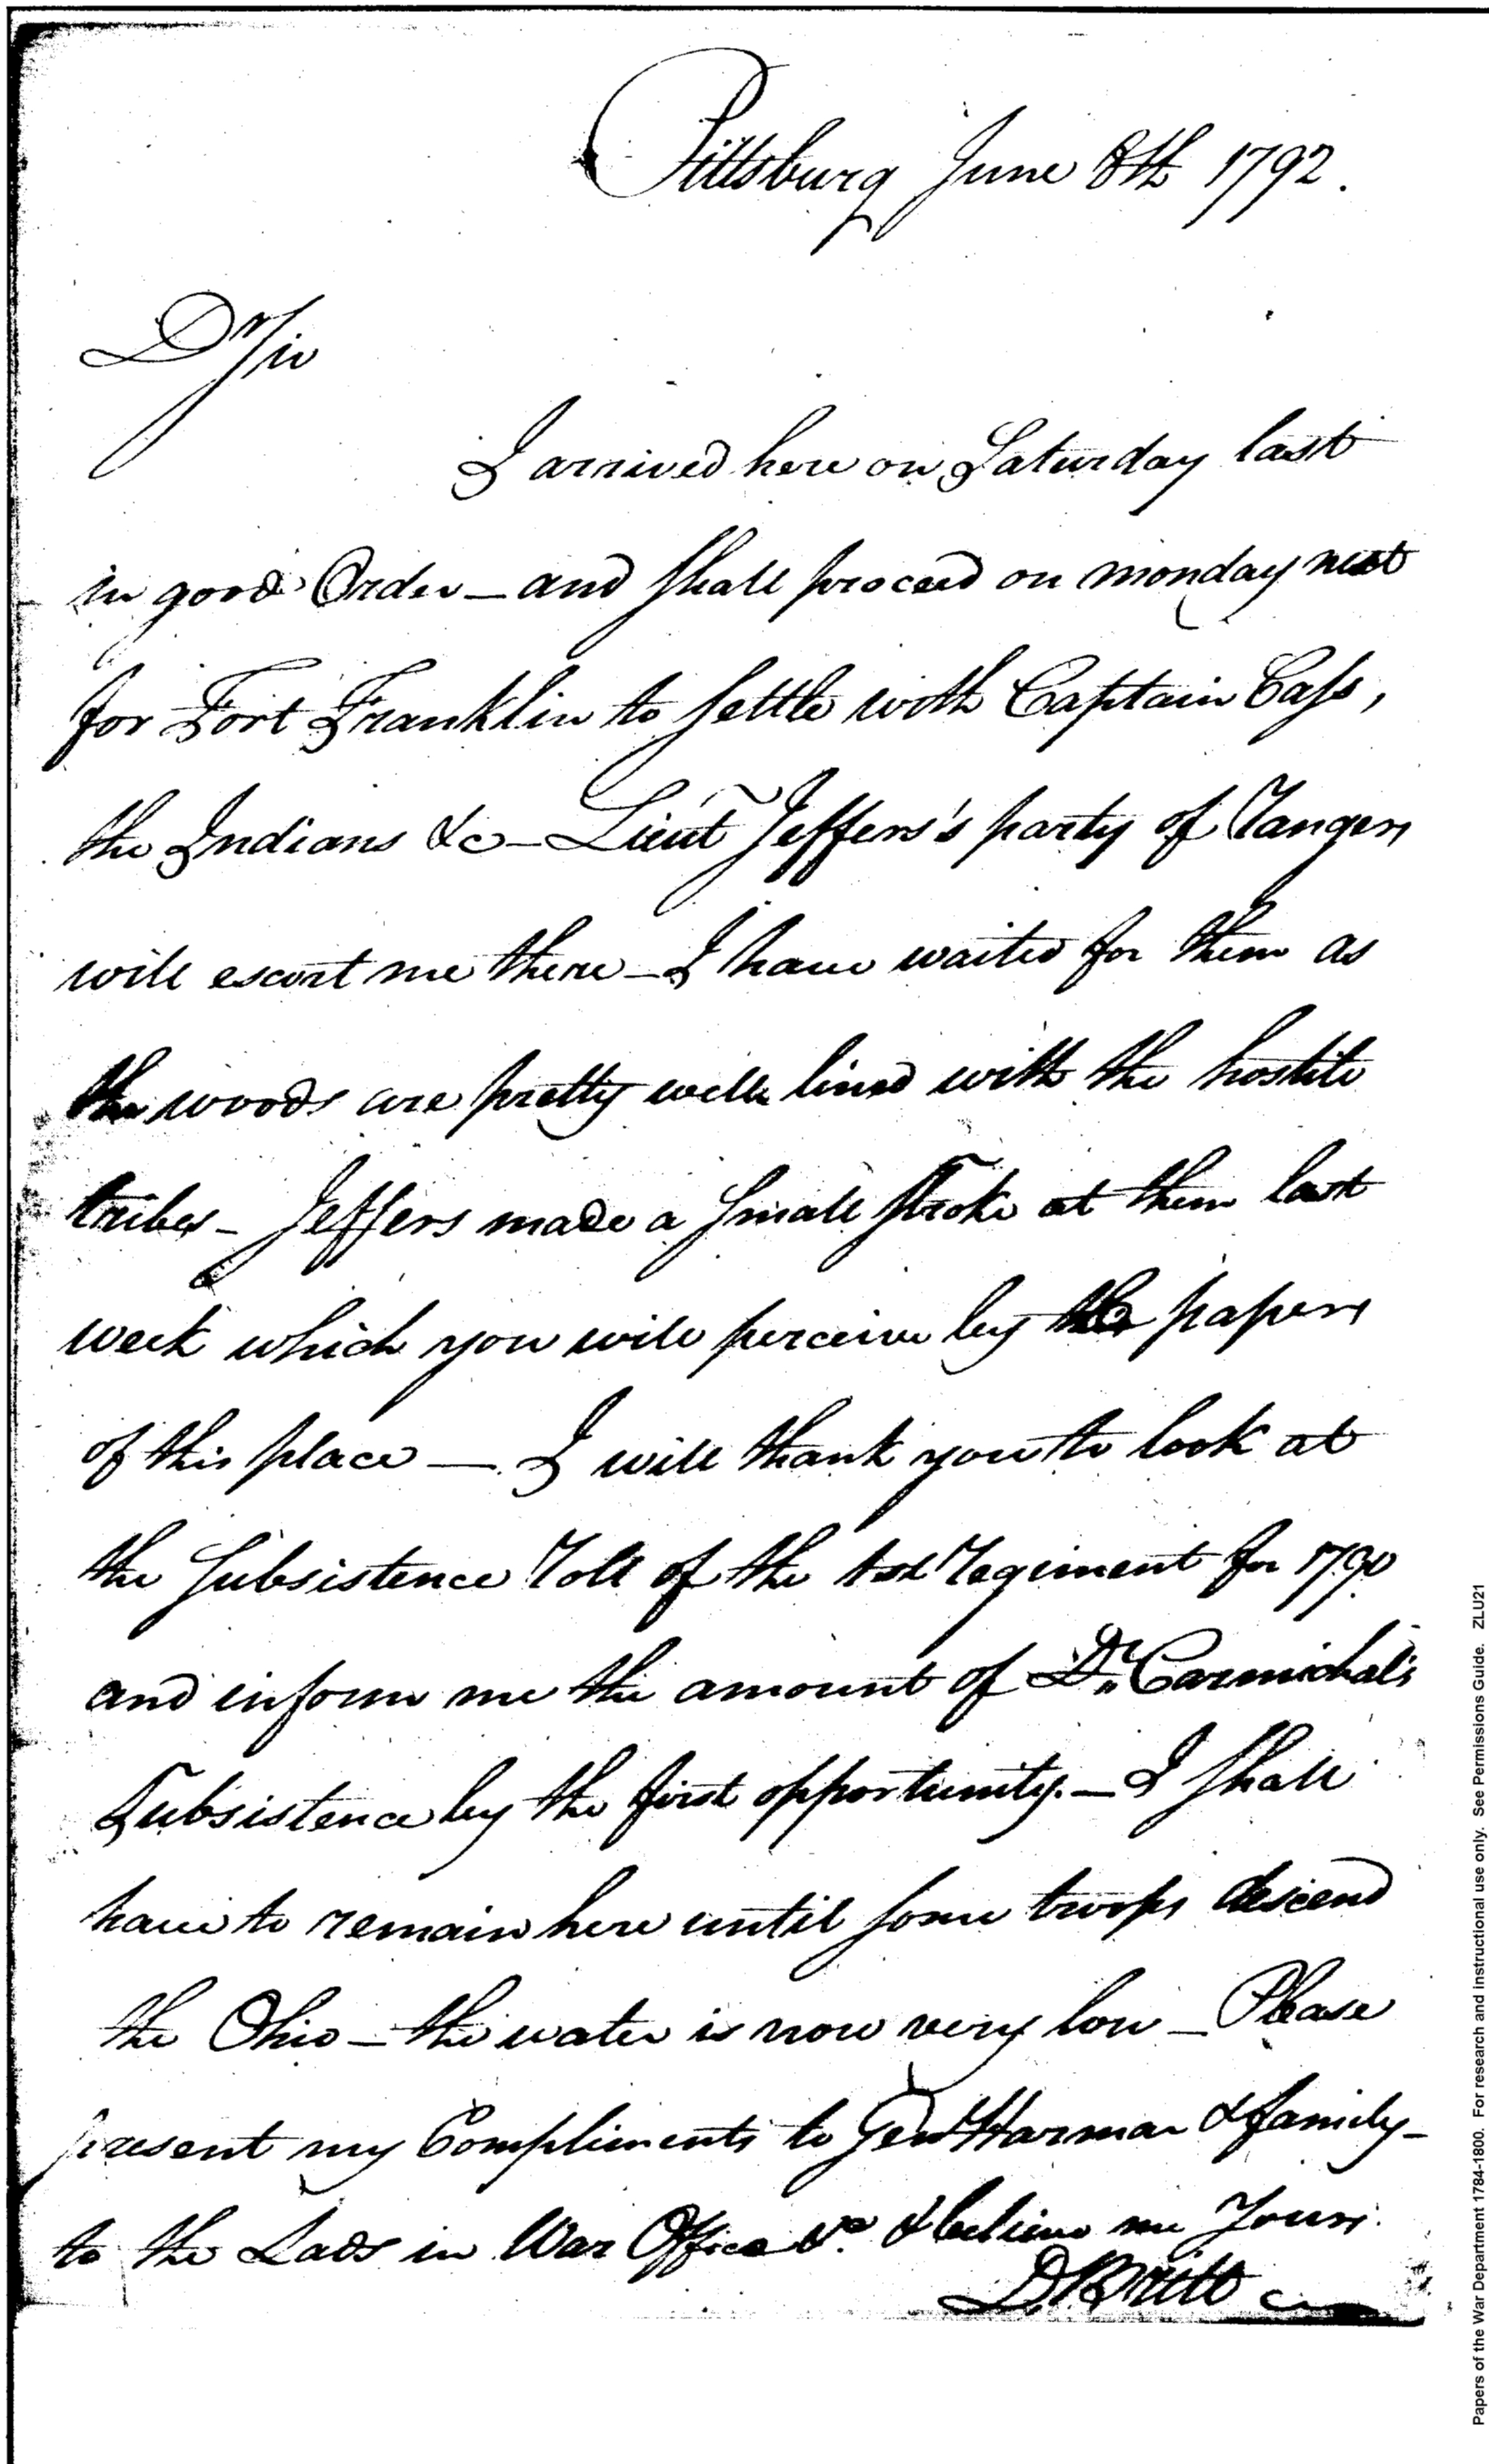 Pittsburg June 8th 1792.
Dr Sir
I arrived here on Saturday last
in good Order — and shall proceed on monday next
for Fort Franklin to settle with Captain Cass,
the Indians &c — Lieut Jeffers's party of Rangers
will escort me there — I have waited for them as
the woods are pretty well lined with the hostile
tribes — Jeffers made a small stroke at them last
week which you will perceive by the papers
of this place — I will thank you to look at
the Subsistence Roll of the 1st Regiment for 1790
and inform me the amount of Dr. Carmichal's
Subsistence by the first opportunity. — I shall
have to remain here until some troops descend
the Ohio — the water is now very low — Please
present my Compliments to Genl Harmar & family —
to the Lads in War Office &c. & believe me Yours.
D. Britt
Papers of the War Department 1784-1800. For research and instructional use only. See Permissions Guide. ZLU21